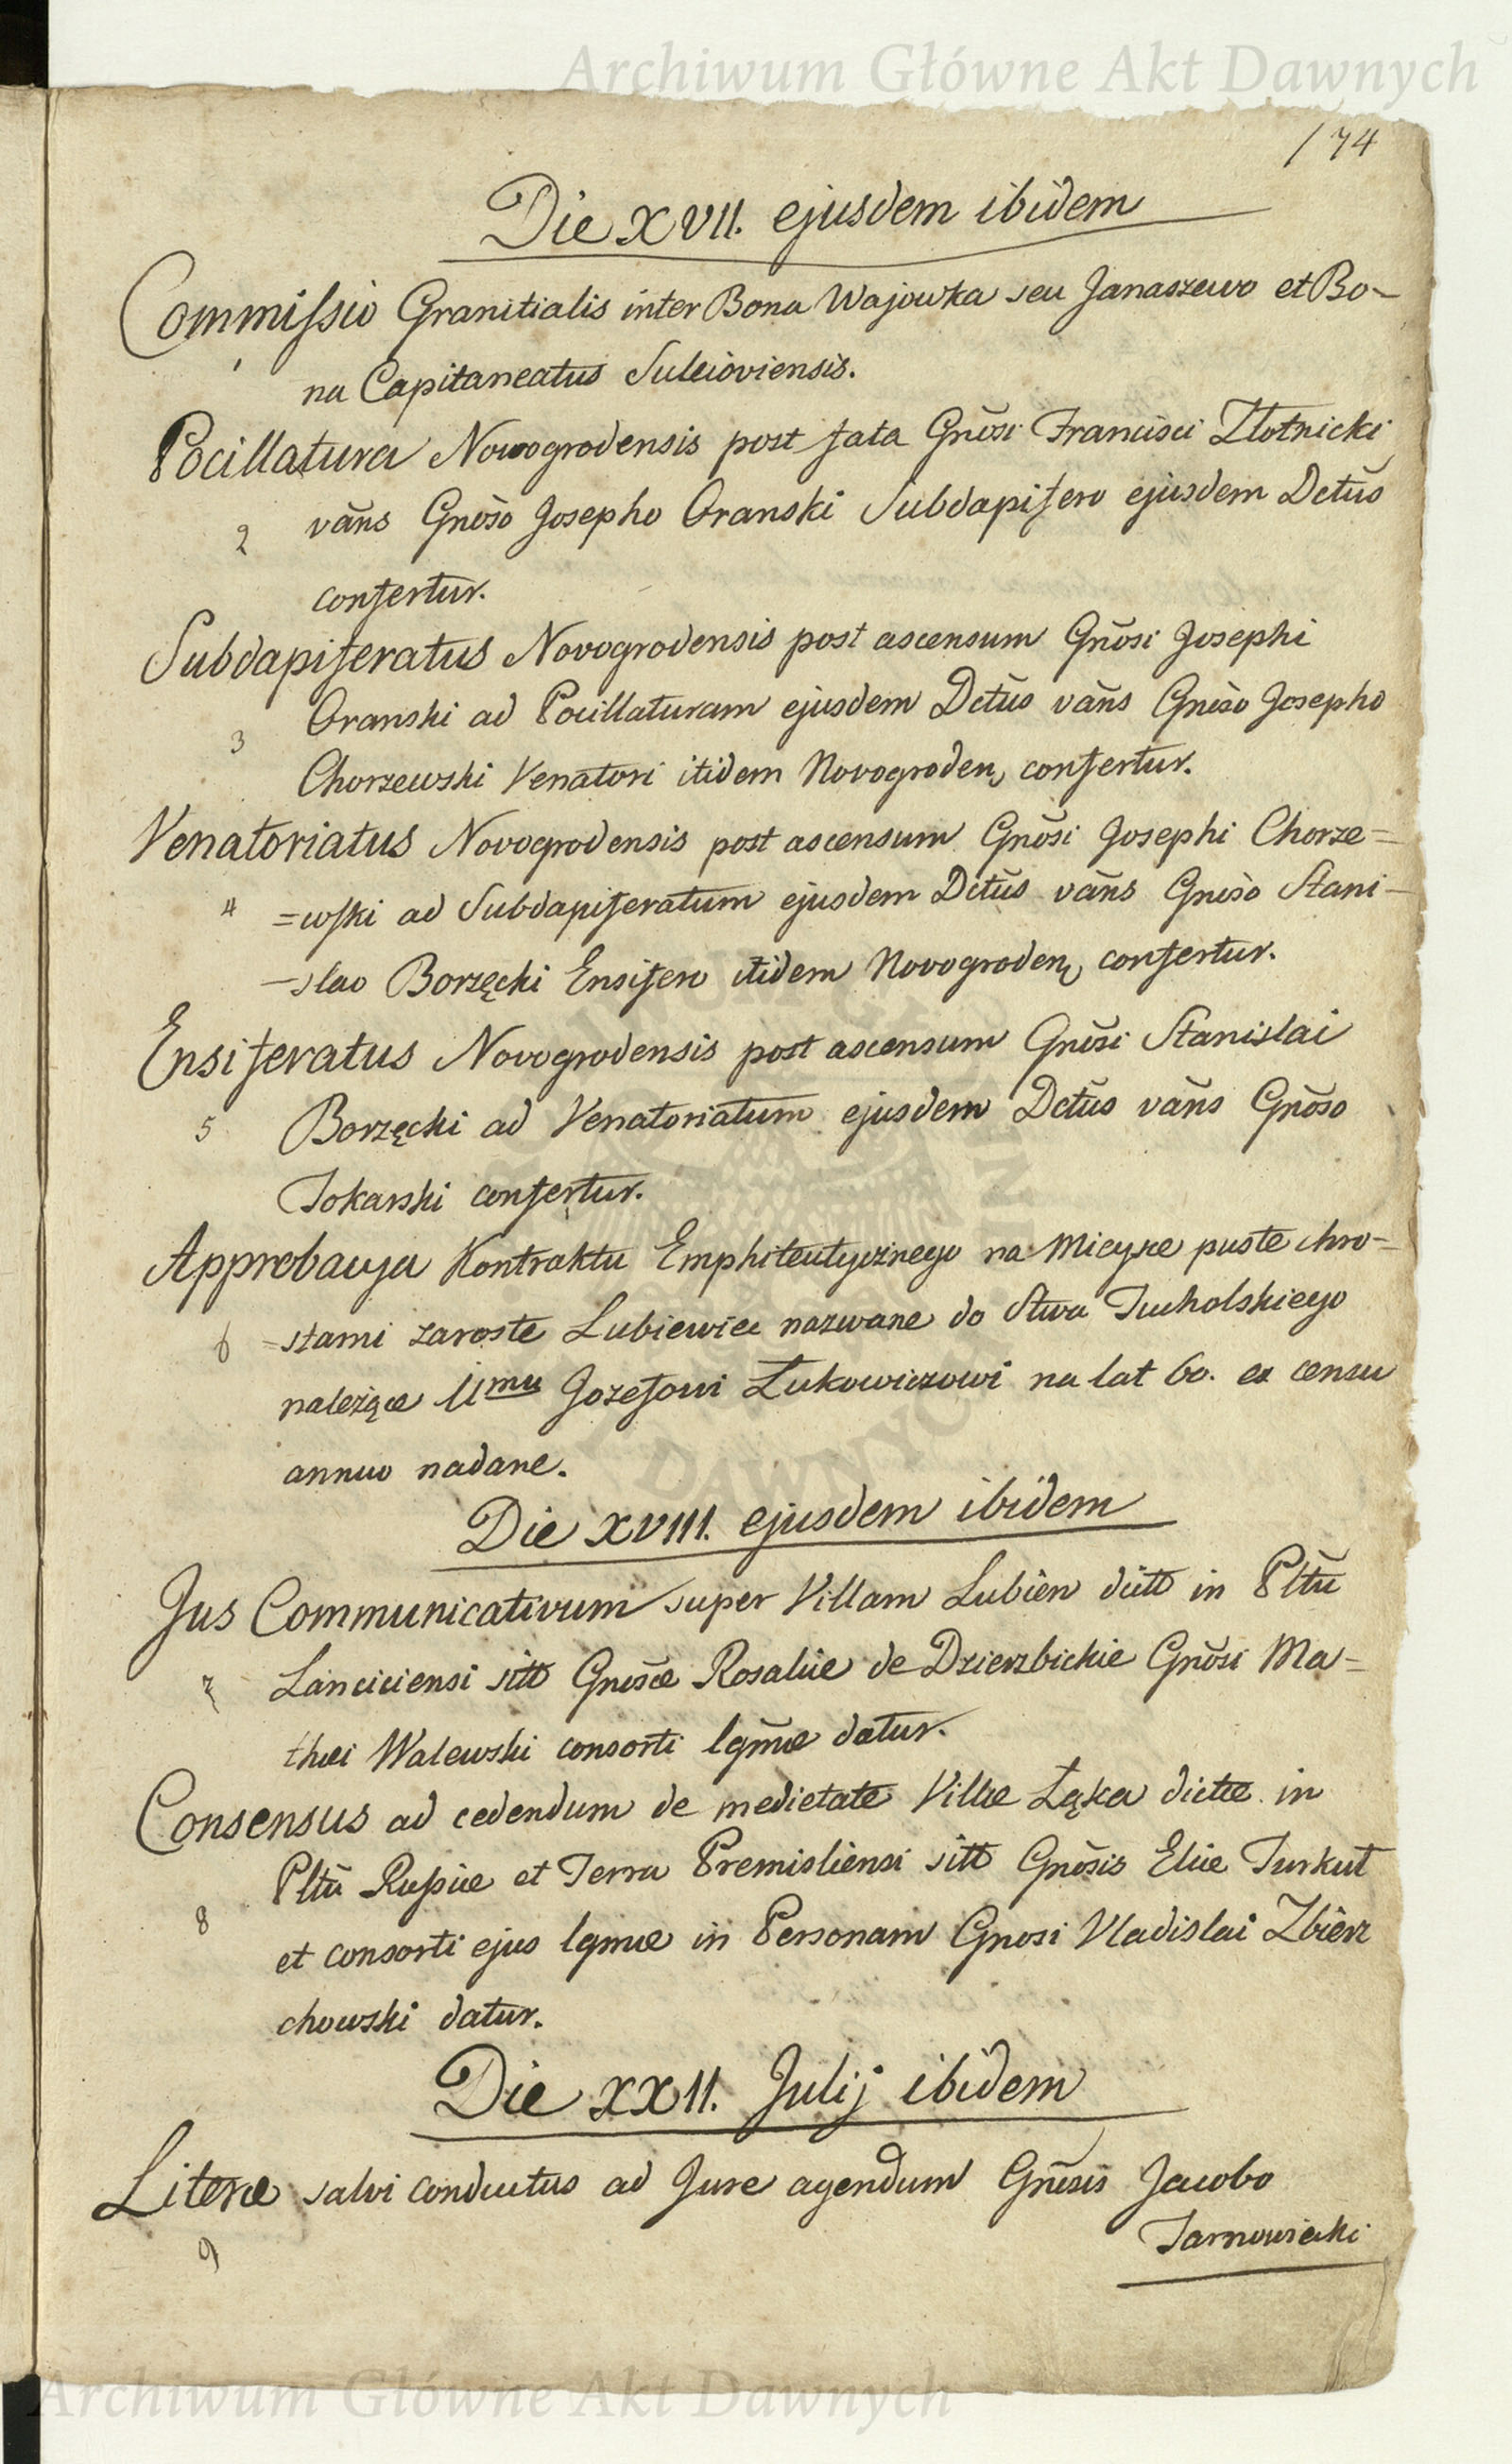 Archiwum Główne Akt Dawnych
174
Die XVII. ejusdem ibidem
Commissio Granitialis inter Bona Wajowka seu Janaszewo et Bo-
1
na Capitaneatus Suleioviensis.
Pocillatura Nowogrodensis post fata Gnõsi Francisci Złotnicki
2 vãns Gnõso Josepho Oranski Subdapifero ejusdem Dctũs
confertur.
Subdapiferatus Novogrodensis post ascensum Gnõsi Josephi
3 Oranski ad Pocillaturam ejusdem Dctũs vãns Gnõso Josepho
Chorzewski Venatori itidem Novogroden, confertur.
Venatoriatus Novogrodensis post ascensum Gnõsi Josephi Chorze=
4 =wski ad Subdapiferatum ejusdem Dctũs vãns Gnõso Stani-
-slao Borzęcki Ensifero itidem Novogroden, confertur.
Ensiferatus Novogrodensis post ascensum Gnõsi Stanislai
5 Borzęcki ad Venatoriatum ejusdem Dctũs vãns Gnõso
Tokarski confertur.
Approbacya Kontraktu Emphiteutycznego na Mieysce puste chro=
6 =stami zarosłe Lubiewice nazwane do Stwa Tucholskiego
należące Urmu Jozefowi Łukowiczowi na lat 60. ex censu
annuo nadane.
Die XVIII. ejusdem ibidem
Jus Communicativum super Villam Lubien dictt in Pltũ
7 Lanciciensi sitt Gnõsæ Rosaliæ de Dzierzbickie Gnõsi Ma=
thæi Walewski consorti lgmæ datur.
Consensus ad cedendum de medietate Villæ Łąka dictæ in
Pltũ Russiæ et Terra Premisliensi sitt Gnõsis Eliæ Turkuł
8 et consorti ejus lgmæ in Personam Gnosi Vladislai Zbierz
chowski datur.
Die XXII. Julij ibidem
Literæ salvi conductus ad Jure agendum Gnõsis Jacobo
9
Tarnowiecki
Archiwum Główne Akt Dawnych